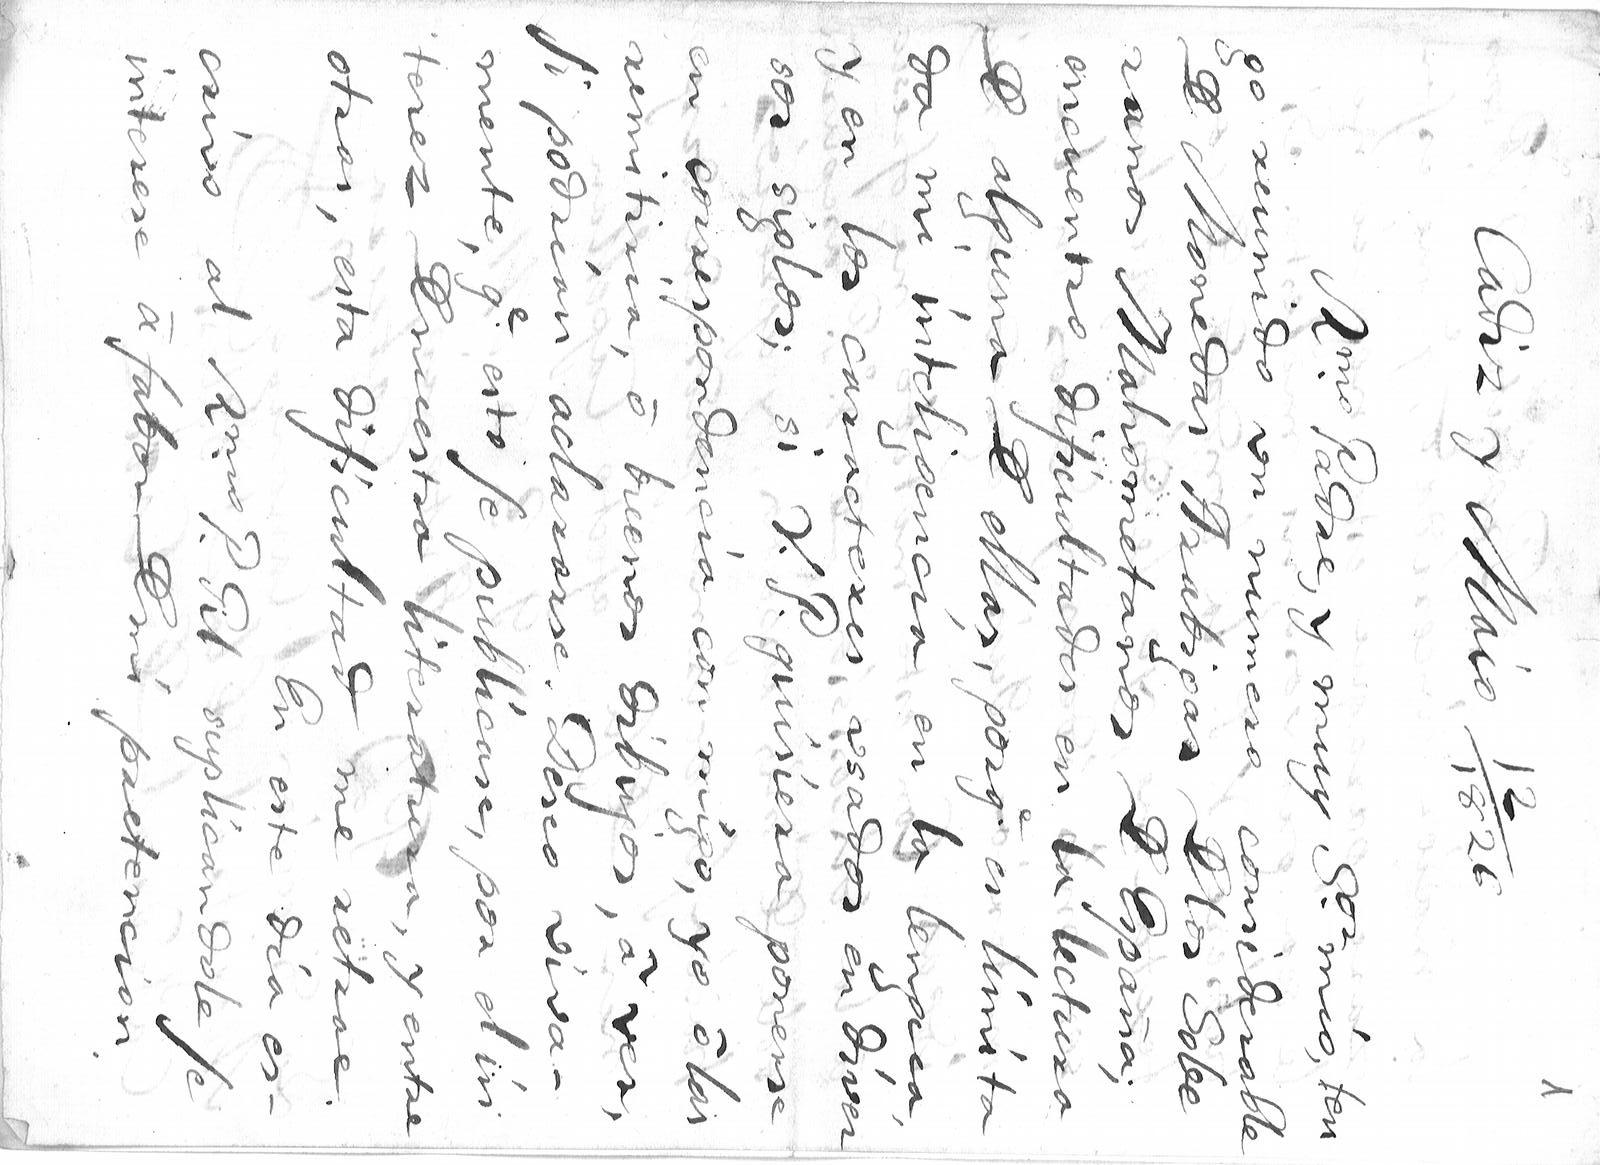 1
Cadiz y Maio 12/1826
Rmo Padre, y muy Sor mio, ten
go reunido un numero considerable
D Monedas Arabigas D los Sobe
ranos Mahometanos D España;
encuentro dificultades en la lectura
D alguna D ellas, porqe es limita
da mi inteligencia en la lengua,
y en los caracteres usados en diver
sos siglos; si V.P. quisiera ponerse
en correspondencia con migo, yo ô las
remitiria, ô buenos dibujos, â ver,
si podrian aclararse. Deseo viva-
mente, qe esto se publicase, por el in
terez D nuestra literatura, y entre
otras, esta dificultad me retrae.
En este dia es-
crivo al Rmo P. Gil suplicandole se
interese â fabor D mi pretencion.